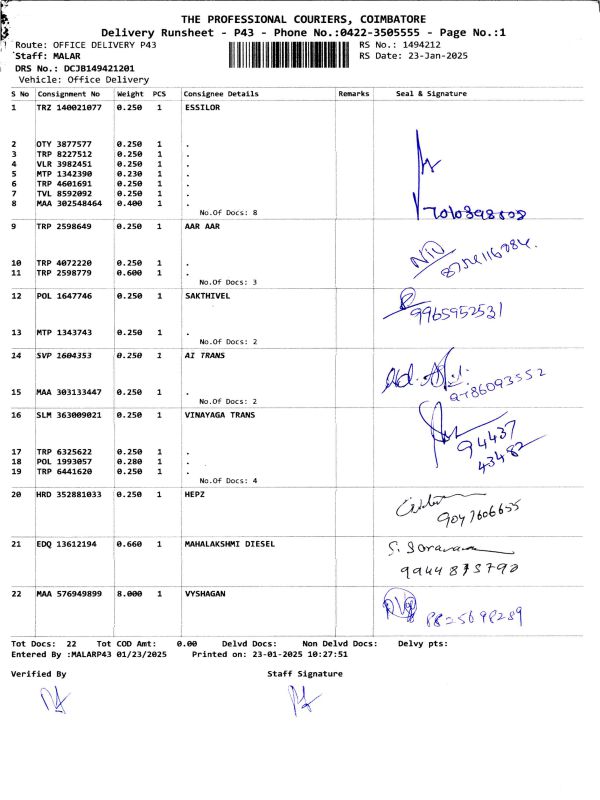 THE PROFESSIONAL COURIERS, COIMBATORE
Delivery Runsheet - P43 - Phone No.:0422-3505555 - Page No.:1
Route: OFFICE DELIVERY P43 RS No.: 1494212
Staff: MALAR RS Date: 23-Jan-2025
DRS No.: DCJB149421201
Vehicle: Office Delivery
S No Consignment No Weight PCS Consignee Details Remarks Seal & Signature
1 TRZ 140021077 0.250 1 ESSILOR
2 OTY 3877577 0.250 1 .
3 TRP 8227512 0.250 1 .
4 VLR 3982451 0.250 1 .
5 MTP 1342390 0.230 1 .
6 TRP 4601691 0.250 1 .
7 TVL 8592092 0.250 1 .
8 MAA 302548464 0.400 1 .
No.Of Docs: 8
9 TRP 2598649 0.250 1 AAR AAR
10 TRP 4072220 0.250 1 .
11 TRP 2598779 0.600 1 .
No.Of Docs: 3
12 POL 1647746 0.250 1 SAKTHIVEL
9965952531
13 MTP 1343743 0.250 1 .
No.Of Docs: 2
14 SVP 1604353 0.250 1 AI TRANS
15 MAA 303133447 0.250 1 .
No.Of Docs: 2
16 SLM 363009021 0.250 1 VINAYAGA TRANS
94437
17 TRP 6325622 0.250 1 .
18 POL 1993057 0.280 1 .
43482
19 TRP 6441620 0.250 1 .
No.Of Docs: 4
20 HRD 352881033 0.250 1 HEPZ
9047606655
21 EDQ 13612194 0.660 1 MAHALAKSHMI DIESEL
22 MAA 576949899 8.000 1 VYSHAGAN
Tot Docs: 22 Tot COD Amt: 0.00 Delvd Docs: Non Delvd Docs: Delvy pts:
Entered By :MALARP43 01/23/2025 Printed on: 23-01-2025 10:27:51
Verified By Staff Signature